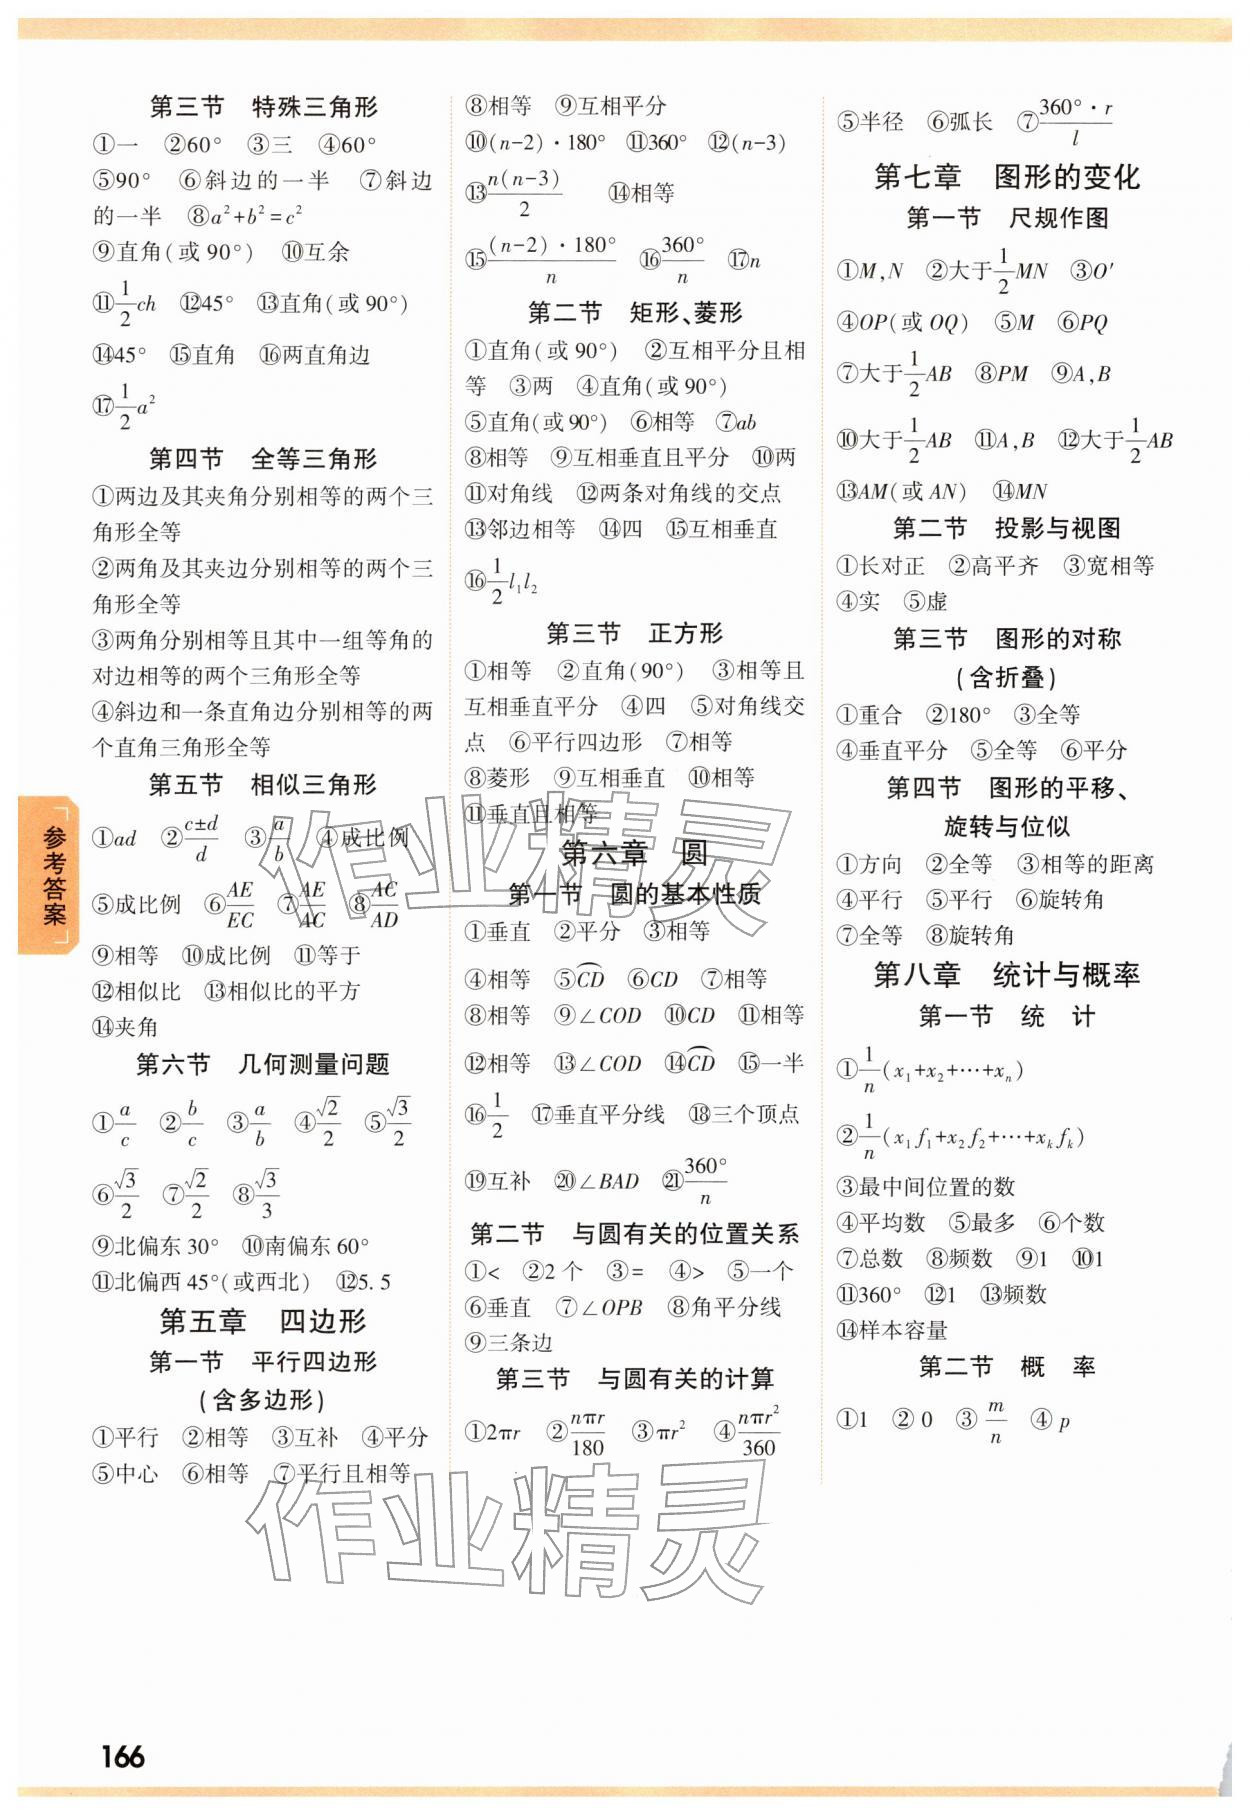 第三节 特殊三角形
①一 ②60° ③三 ④60°
⑤90° ⑥斜边的一半 ⑦斜边
的一半 ⑧a²+b²=c²
⑨直角(或90°) ⑩互余
⑪1/2ch ⑫45° ⑬直角(或90°)
⑭45° ⑮直角 ⑯两直角边
⑰1/2a²
第四节 全等三角形
①两边及其夹角分别相等的两个三
角形全等
②两角及其夹边分别相等的两个三
角形全等
③两角分别相等且其中一组等角的
对边相等的两个三角形全等
④斜边和一条直角边分别相等的两
个直角三角形全等
第五节 相似三角形
①ad ②(c±d)/d ③a/b ④成比例
⑤成比例 ⑥AE/EC ⑦AE/AC ⑧AC/AD
⑨相等 ⑩成比例 ⑪等于
⑫相似比 ⑬相似比的平方
⑭夹角
第六节 几何测量问题
①a/c ②b/c ③a/b ④√2/2 ⑤√3/2
⑥√3/2 ⑦√2/2 ⑧√3/3
⑨北偏东30° ⑩南偏东60°
⑪北偏西45°(或西北) ⑫5.5
第五章 四边形
第一节 平行四边形
(含多边形)
①平行 ②相等 ③互补 ④平分
⑤中心 ⑥相等 ⑦平行且相等
⑧相等 ⑨互相平分
⑩(n-2)·180° ⑪360° ⑫(n-3)
⑬n(n-3)/2 ⑭相等
⑮(n-2)·180°/n ⑯360°/n ⑰n
第二节 矩形、菱形
①直角(或90°) ②互相平分且相
等 ③两 ④直角(或90°)
⑤直角(或90°) ⑥相等 ⑦ab
⑧相等 ⑨互相垂直且平分 ⑩两
⑪对角线 ⑫两条对角线的交点
⑬邻边相等 ⑭四 ⑮互相垂直
⑯1/2l₁l₂
第三节 正方形
①相等 ②直角(90°) ③相等且
互相垂直平分 ④四 ⑤对角线交
点 ⑥平行四边形 ⑦相等
⑧菱形 ⑨互相垂直 ⑩相等
⑪垂直且相等
第六章 圆
第一节 圆的基本性质
①垂直 ②平分 ③相等
④相等 ⑤⌒CD ⑥CD ⑦相等
⑧相等 ⑨∠COD ⑩CD ⑪相等
⑫相等 ⑬∠COD ⑭⌒CD ⑮一半
⑯1/2 ⑰垂直平分线 ⑱三个顶点
⑲互补 ⑳∠BAD ㉑360°/n
第二节 与圆有关的位置关系
①< ②2个 ③= ④> ⑤一个
⑥垂直 ⑦∠OPB ⑧角平分线
⑨三条边
第三节 与圆有关的计算
①2πr ②nπr/180 ③πr² ④nπr²/360
⑤半径 ⑥弧长 ⑦360°·r/l
第七章 图形的变化
第一节 尺规作图
①M,N ②大于1/2MN ③O′
④OP(或OQ) ⑤M ⑥PQ
⑦大于1/2AB ⑧PM ⑨A,B
⑩大于1/2AB ⑪A,B ⑫大于1/2AB
⑬AM(或AN) ⑭MN
第二节 投影与视图
①长对正 ②高平齐 ③宽相等
④实 ⑤虚
第三节 图形的对称
(含折叠)
①重合 ②180° ③全等
④垂直平分 ⑤全等 ⑥平分
第四节 图形的平移、
旋转与位似
①方向 ②全等 ③相等的距离
④平行 ⑤平行 ⑥旋转角
⑦全等 ⑧旋转角
第八章 统计与概率
第一节 统 计
①1/n(x₁+x₂+···+xₙ)
②1/n(x₁f₁+x₂f₂+···+xₖfₖ)
③最中间位置的数
④平均数 ⑤最多 ⑥个数
⑦总数 ⑧频数 ⑨1 ⑩1
⑪360° ⑫1 ⑬频数
⑭样本容量
第二节 概 率
①1 ②0 ③m/n ④p
参考答案
作业精灵
作业精灵
166